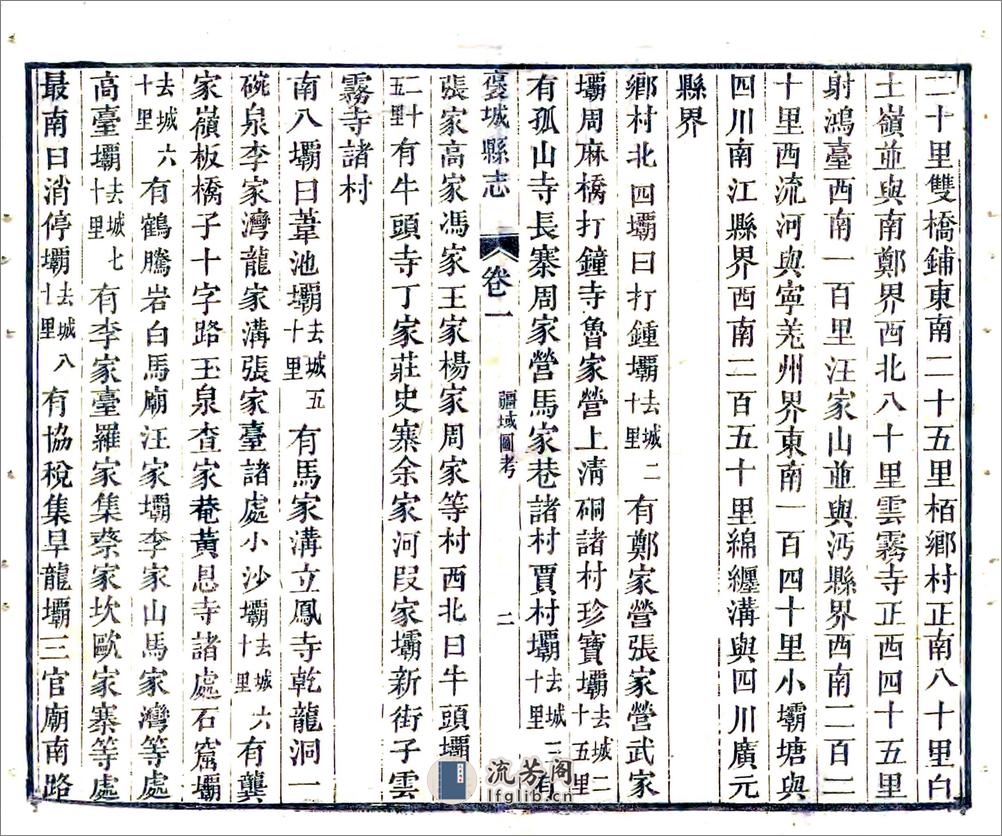 二十里雙橋鋪東南二十五里栢鄉村正南八十里白
土嶺並與南鄭界西北八十里雲霧寺正西四十五里
射鴻臺西南一百里汪家山並與沔縣界西南二百二
十里西流河與寧羌州界東南一百四十里小壩塘與
四川南江縣界西南二百五十里綿纏溝與四川廣元
縣界
鄉村北四壩曰打鍾壩去城二十里有鄭家營張家營武家
壩周麻橋打鐘寺魯家營上清硐諸村珍寶壩去城二十五里
有孤山寺長寨周家營馬家巷諸村賈村壩去城三十里有
褒城縣志 卷一 疆域圖考 二
張家高家馮家王家楊家周家等村西北曰牛頭壩
二十五里有牛頭寺丁家莊史寨余家河段家壩新街子雲
霧寺諸村
南八壩曰葦池壩去城五十里有馬家溝立鳳寺乾龍洞一
碗泉李家灣龍家溝張家臺諸處小沙壩去城六十里有龔
家嶺板橋子十字路玉泉查家菴黃恩寺諸處石窰壩
去城六十里有鶴騰岩白馬廟汪家壩李家山馬家灣等處
高臺壩去城七十里有李家臺羅家集蔡家坎歐家寨等處
最南曰消停壩去城八十里有協稅集旱龍壩三官廟南路
流芳阁
lfglib.cn